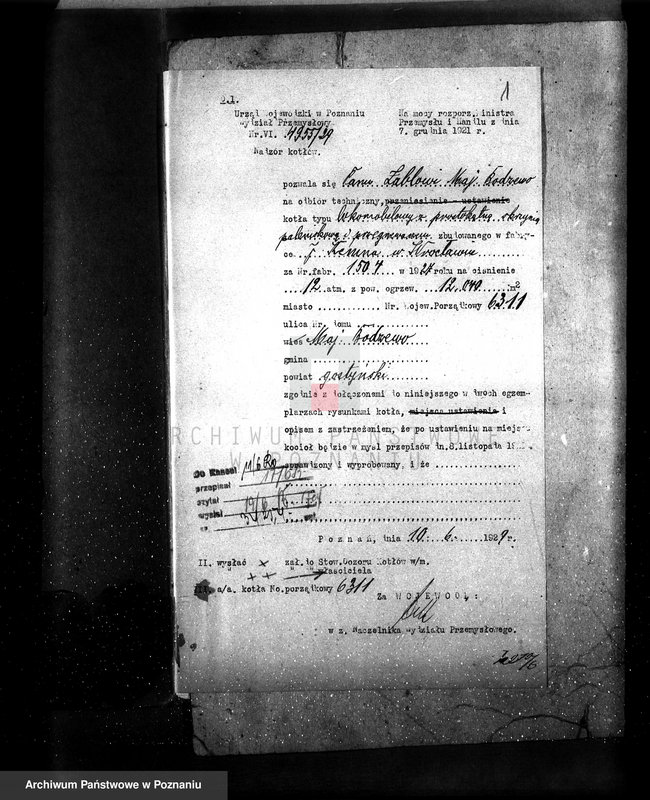 1
21.
Urząd Wojewódzki w Poznaniu
Wydział Przemysłowy
Nr.VI. 4955/29
Nadzór kotłów.
Na mocy rozporz. Ministra
Przemysłu i Handlu z dnia
7. grudnia 1921 r.
pozwala się Maj. Bodzewo
na odbiór techniczny, przeniesienie - ustawienie
kotła typu lokomobilowy z prostokątną skrzynią
paleniskową zbudowanego w fabry-
ce J. Kemna w Wrocławiu
za Nr.fabr. 1504 w 192 roku na ciśnienie
12 atm. z pow. ogrzew. 12,040 m2
miasto ............ Nr. Wojew.Porządkowy 6311
ulica Nr. domu ..............
wieś Maj. Bodzewo
gmina ..................
powiat gostyński
zgodnie z dołączonemi do niniejszego w dwoch egzem-
plarzach rysunkami kotła, miejsca ustawienia i
opisem z zastrzeżeniem, że po ustawieniu na miejscu
kocioł będzie w myśl przepisów dn.8.listopada 19
sprawdzony i wypróbowany, i że ..............
ARCHIWUM PAŃSTWOWE
W POZNANIU
Do Kancel. 11/6
przepisał
czytał
wysłał
Poznań, dnia 10. 6. 1929 r.
II. wysłać x zał. do Stow.Dozoru Kotłów w/m.
++ " " właściciela
III. a/a. kotła No.porządkowy 6311
Za WOJEWODĘ:
w z. Naczelnika Wydziału Przemysłowego.
Archiwum Państwowe w Poznaniu